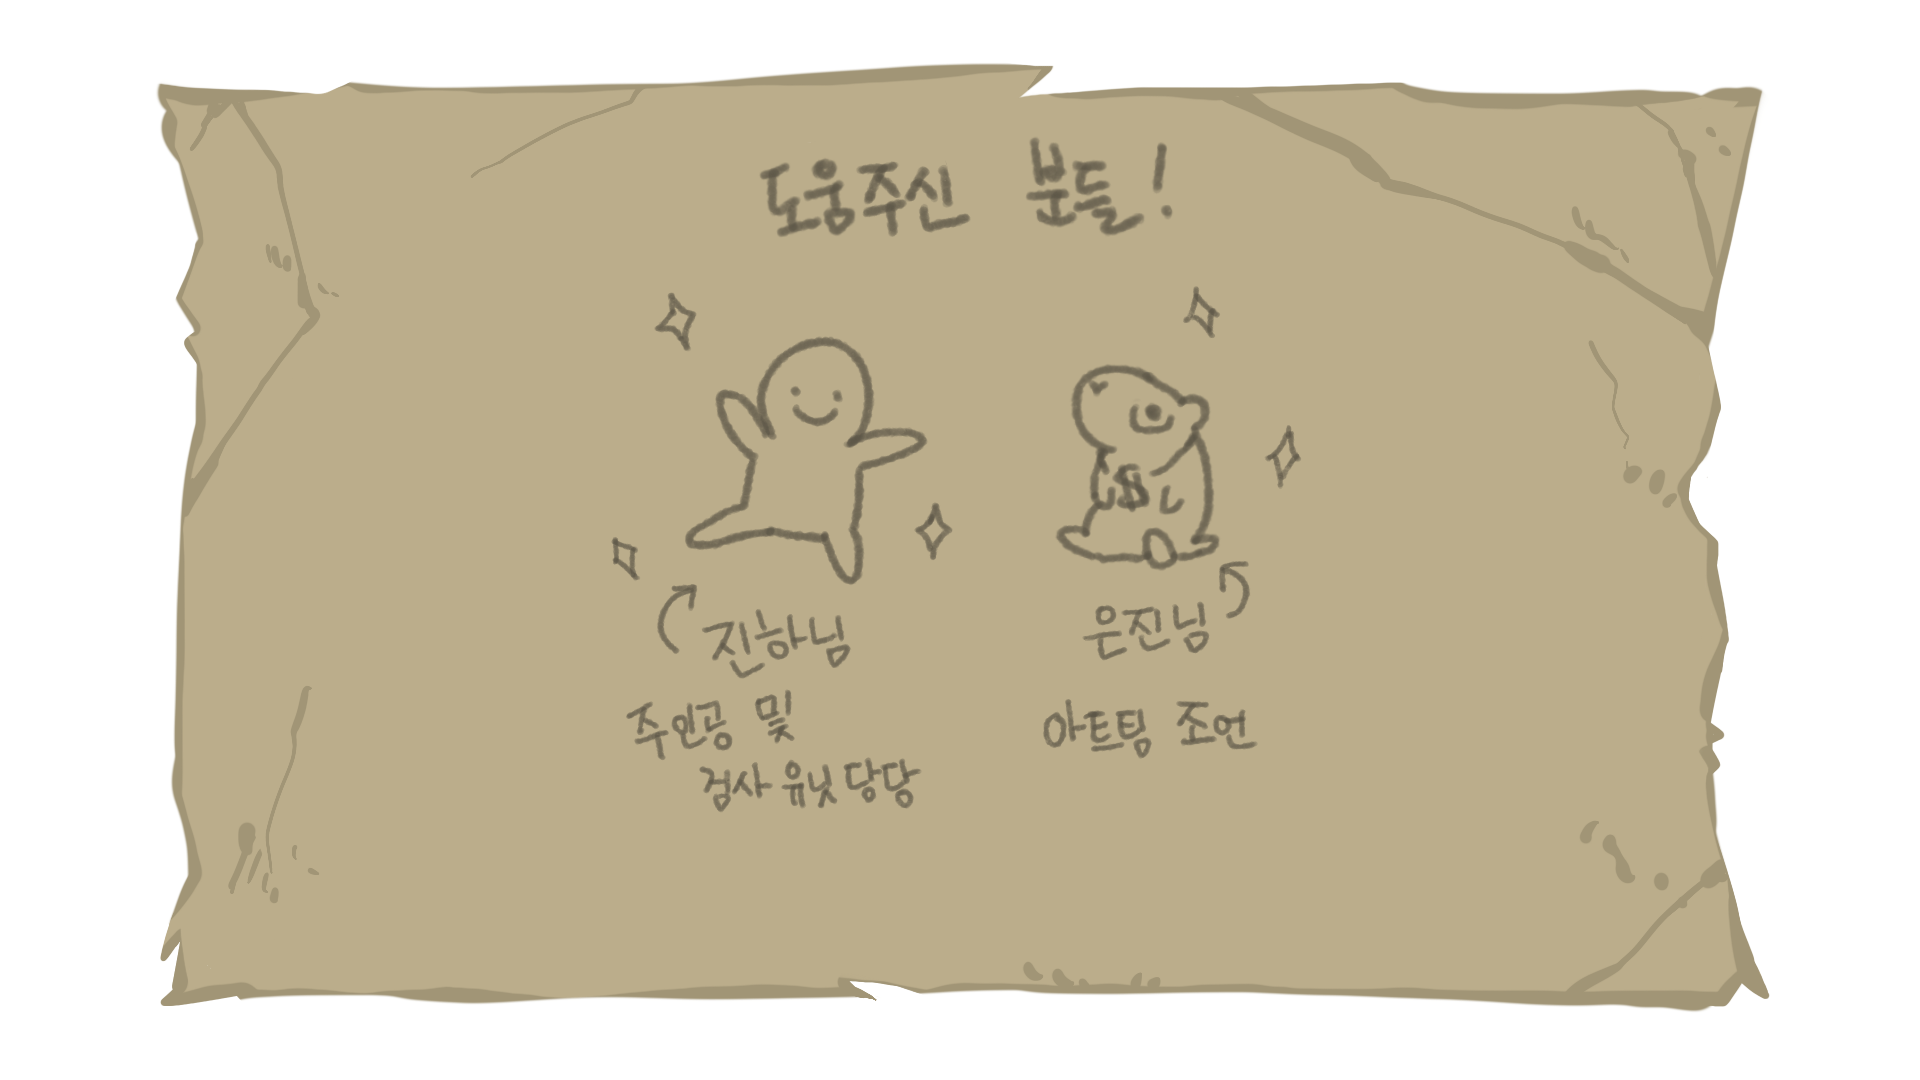 도움주신 분들!
진하님
주인공 및
검사 유닛 담당
은진님
아트팀 조언